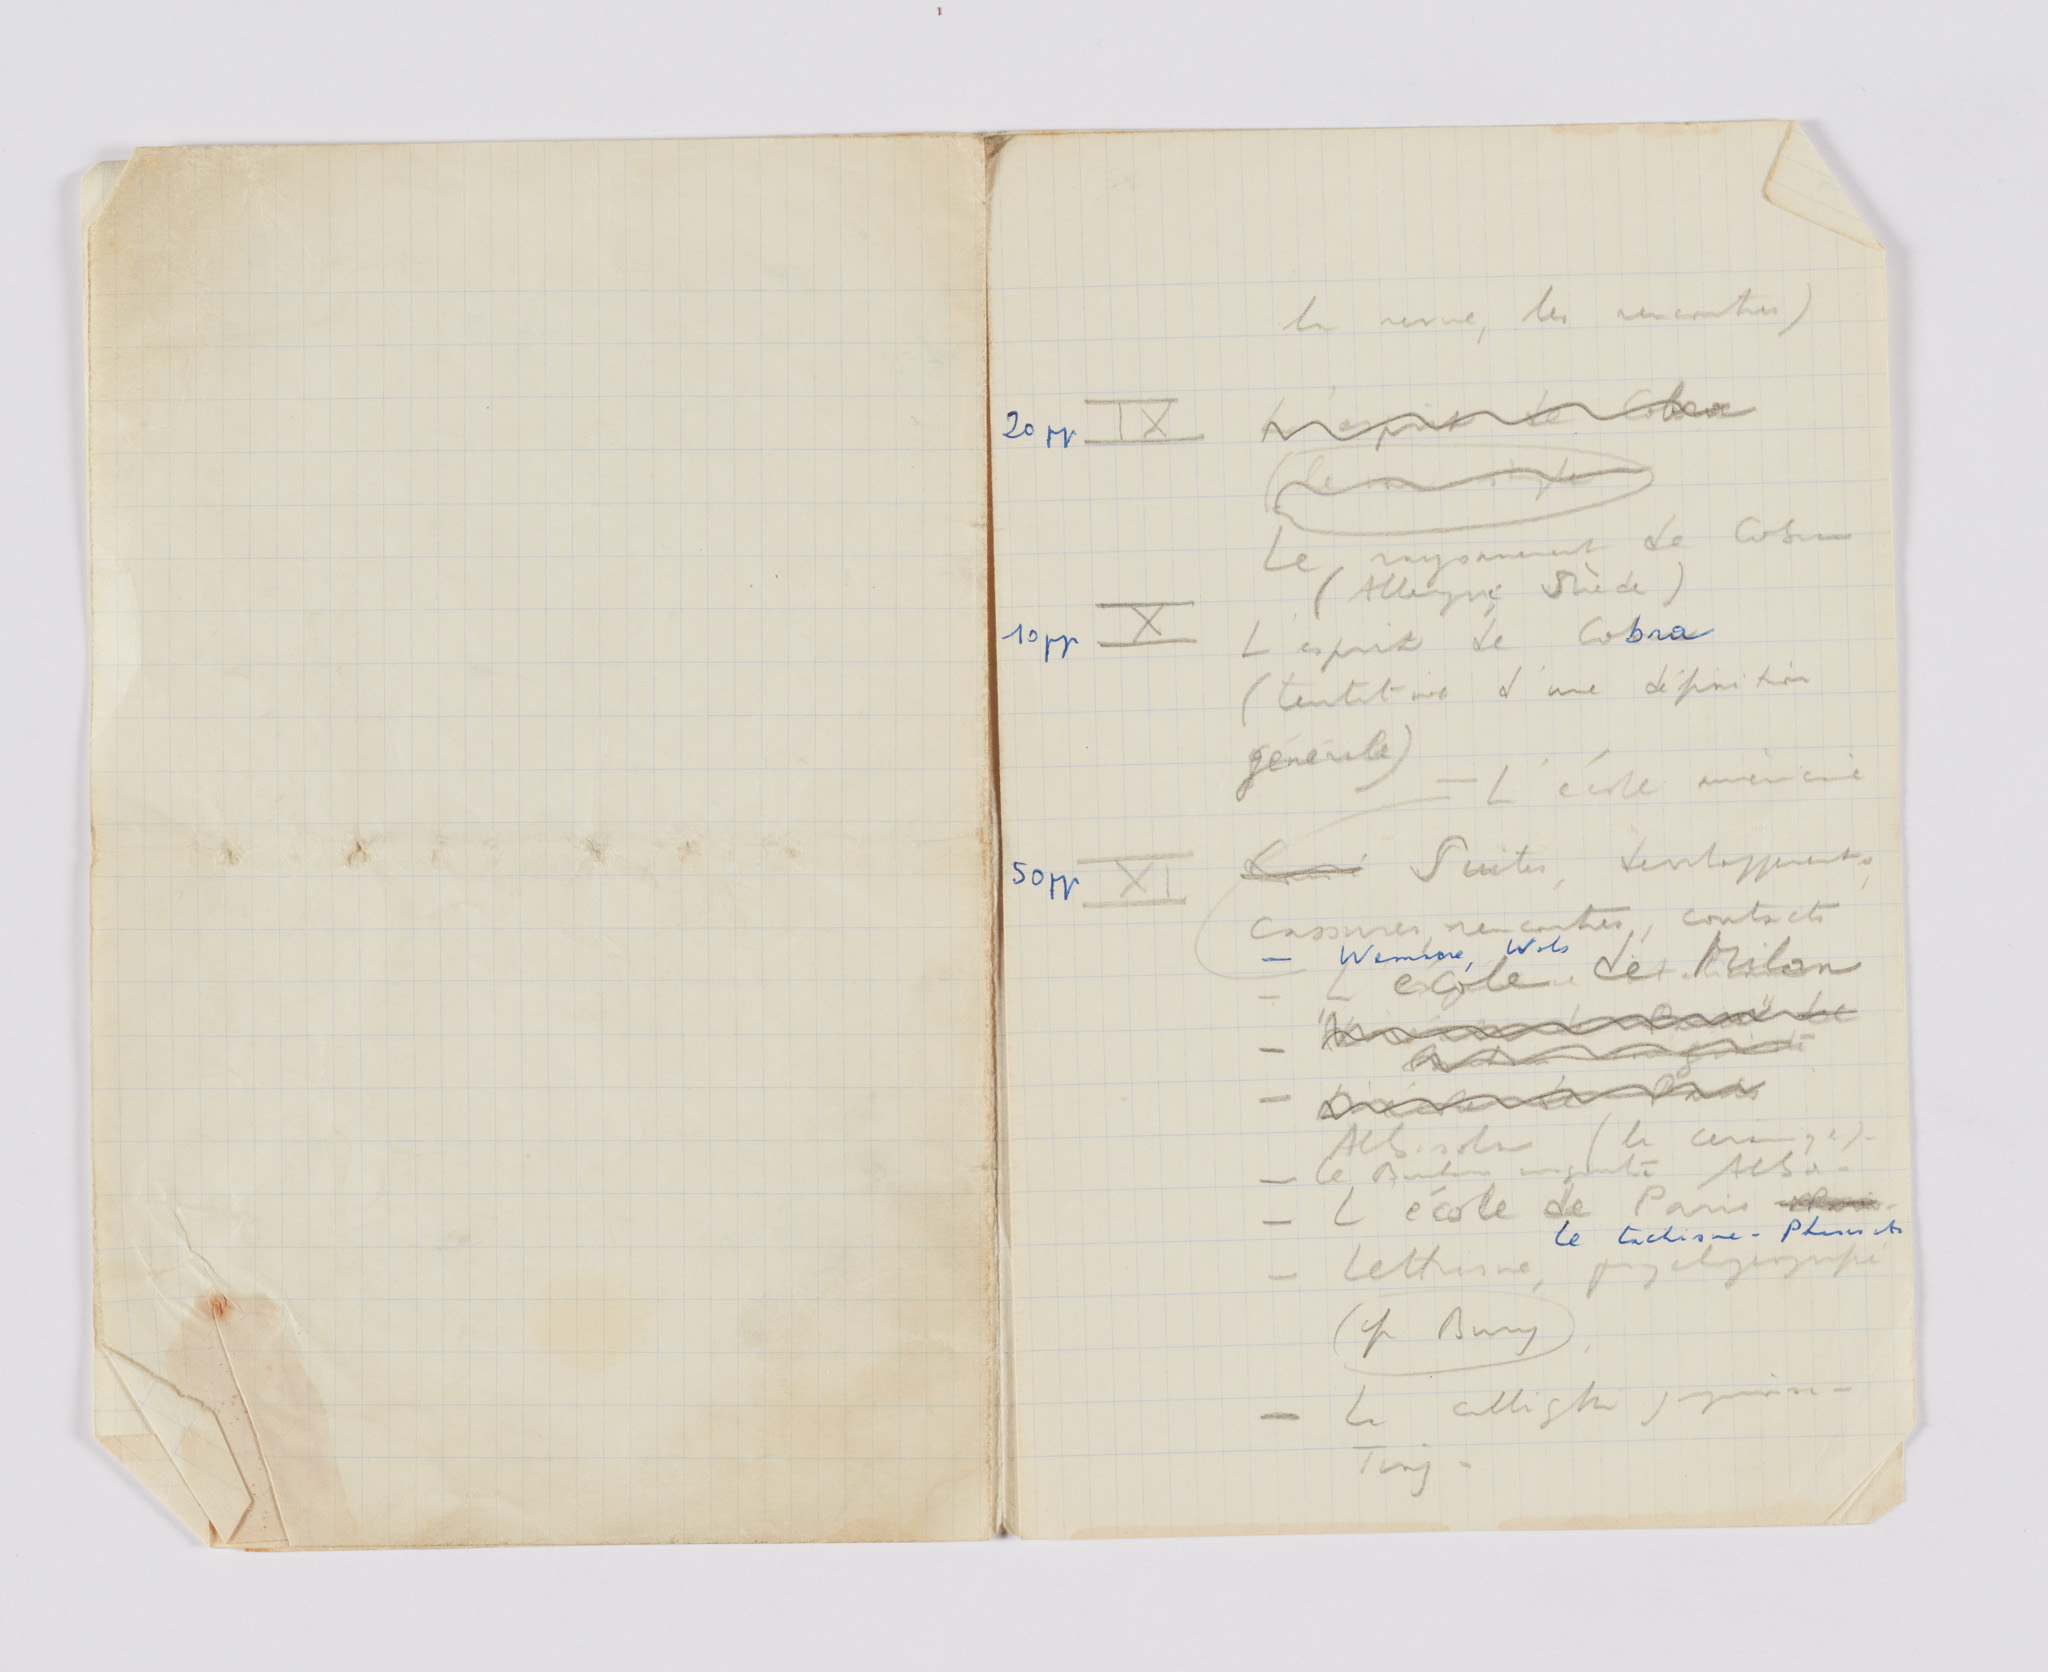 la revue, les rencontres)
20 pp IX L'esprit de Cobra
Le rayonnement de Cobra
(Allemagne, Suède)
10 pp X L'esprit de Cobra
(tentative d'une définition
générale)
— L'école américaine
50 pp XI Suites, développements,
cassures, rencontres, contacts
— Wemaëre, Wols
— L'école de Milan
—
— L'école de Paris
Albisola (la céramique).
— Le Bauhaus imaginiste Alba -
— L'école de Paris
le tachisme - Phases etc
— Lettrisme, psychogéographie
(cf Bury)
— La calligraphie japonaise -
Ting -